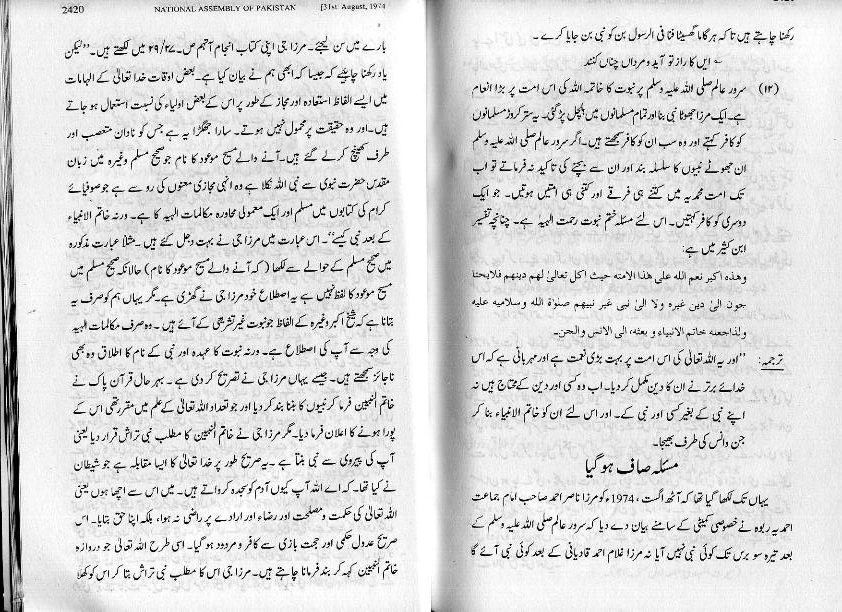 2420 NATIONAL ASSEMBLY OF PAKISTAN [31st August, 1974
بارے میں سن لیجئے۔ مرزا جی اپنی کتاب انجام آتھم ص۔ ۲۹/۲۷ میں لکھتے ہیں۔ ”لیکن
یاد رکھنا چاہئے کہ جیسا کہ ابھی ہم نے بیان کیا ہے۔ بعض اوقات خدا تعالیٰ کے الہامات
میں ایسے الفاظ استعاذہ اور مجاز کے طور پر اس کے بعض اولیاء کی نسبت استعمال ہو جاتے
ہیں۔ اور وہ حقیقت پر محمول نہیں ہوتے۔ سارا جھگڑا یہ ہے جس کو نادان متعصب اور
طرف کھینچ کر لے گئے ہیں۔ آنے والے مسیح موعود کا نام جو صحیح مسلم وغیرہ میں زبان
مقدس حضرت نبوی سے نبی اللہ نکلا ہے وہ انہی مجازی معنوں کی رو سے ہے جو صوفیائے
کرام کی کتابوں میں مسلم اور ایک معمولی محاورہ مکالمات الہیہ کا ہے۔ ورنہ خاتم الانبیاء
کے بعد نبی کیسے“۔ اس عبارت میں مرزا جی نے بہت دجل کئے ہیں۔ مثلاً عبارت مذکورہ
میں صحیح مسلم کے حوالے سے لکھا (کہ آنے والے مسیح موعود کا نام) حالانکہ صحیح مسلم میں
مسیح موعود کا لفظ نہیں ہے یہ اصطلاح خود مرزا جی نے گھڑی ہے۔ مگر یہاں ہم کو صرف یہ
بتانا ہے کہ شیخ اکبر وغیرہ کے الفاظ جو نبوت غیر تشریعی کے آئے ہیں۔ وہ صرف مکالمات الہیہ
کی وجہ سے آپ کی اصطلاح ہے۔ ورنہ نبوت کا عہدہ اور نبی کے نام کا اطلاق وہ بھی
ناجائز سمجھتے ہیں۔ جیسے یہاں مرزا جی نے تصریح کر دی ہے۔ بہرحال قرآن پاک نے
خاتم النبیین فرما کر نبیوں کا بننا بند کر دیا اور جو تعداد اللہ تعالیٰ کے علم میں مقرر تھی اس کے
پورا ہونے کا اعلان فرما دیا۔ مگر مرزا جی نے خاتم النبیین کا مطلب نبی تراش قرار دیا یعنی
آپ کی پیروی سے نبی بنتا ہے۔ یہ صریح طور پر خدا تعالیٰ کا ایسا مقابلہ ہے جو شیطان
نے کیا تھا۔ کہ اے اللہ آپ کیوں آدم کو سجدہ کرواتے ہیں۔ میں اس سے اچھا ہوں یعنی
اللہ تعالیٰ کی حکمت و مصلحت اور رضاء اور ارادے پر راضی نہ ہوا، بلکہ اپنا حق بتایا۔ اس
صریح عدول حکمی اور حجت بازی سے کافر و مردود ہو گیا۔ اسی طرح اللہ تعالیٰ جو دروازہ
خاتم النبیین کہہ کر بند فرمانا چاہتے ہیں۔ مرزا جی اس کا مطلب نبی تراش بتا کر اس کو کھلا
رکھنا چاہتے ہیں تاکہ ہر گاما گھسیٹا فنا فی الرسول بن کر نبی بن جایا کرے۔
ایں کا راز تو آید و مرداں چناں کنند
(۱۲) سرور عالم صلی اللہ علیہ وسلم پر نبوت کا خاتمہ اللہ کی اس امت پر بڑا انعام
ہے۔ ایک مرزا جھوٹا نبی بنا اور تمام مسلمانوں میں ہلچل پڑ گئی۔ یہ ستر کروڑ مسلمانوں
کو کافر کہتے اور وہ سب ان کو کافر سمجھتے ہیں۔ اگر سرور عالم صلی اللہ علیہ وسلم
ان جھوٹے نبیوں کا سلسلہ بند اور ان سے بچنے کی تاکید نہ فرماتے تو اب
تک امت محمدیہ میں کتنے ہی فرقے اور کتنی ہی امتیں ہوتیں۔ جو ایک
دوسری کو کافر کہتیں۔ اس لئے مسئلہ ختم نبوت رحمت الہیہ ہے۔ چنانچہ تفسیر
ابن کثیر میں ہے:
وهذه اكبر نعم الله على هذا الامته حيث اكل تعالىٰ لهم دينهم فلايحتا
جون الىٰ دين غيره ولا الىٰ نبى غير نبيهم صلوٰة الله وسلاميه عليه
ولذاجعله خاتم الانبياء و بعثه، الى الانس والجن۔
ترجمہ: ”اور یہ اللہ تعالیٰ کی اس امت پر بہت بڑی نعمت ہے اور مہربانی ہے کہ اس
خدائے برتر نے ان کا دین مکمل کر دیا۔ اب وہ کسی اور دین کے محتاج ہیں نہ
اپنے نبی کے بغیر کسی اور نبی کے۔ اور اس لئے ان کو خاتم الانبیاء بنا کر
جن و انس کی طرف بھیجا۔
مسئلہ صاف ہو گیا
یہاں تک لکھا گیا تھا کہ آٹھ اگست ، 1974ء کو مرزا ناصر احمد صاحب امام جماعت
احمدیہ ربوہ نے خصوصی کمیٹی کے سامنے بیان دے دیا کہ سرور عالم صلی اللہ علیہ وسلم کے
بعد تیرہ سو برس تک کوئی نبی نہیں آیا نہ مرزا غلام احمد قادیانی کے بعد کوئی نبی آئے گا